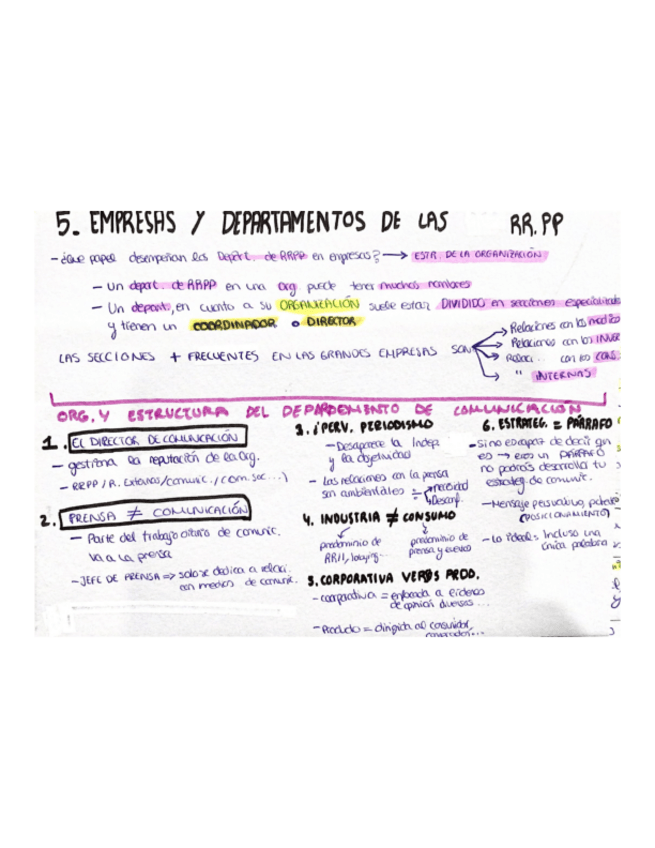 5. EMPRESAS Y DEPARTAMENTOS DE LAS RR.PP
- ¿Que papel desempeñan los Depart. de RRPP en empresas? → ESTR. DE LA ORGANIZACIÓN
- Un depart. de RRPP en una org puede tener muchos nombres
- Un depart, en cuanto a su ORGANIZACIÓN suele estar DIVIDIDO en secciones especializadas
y tienen un COORDINADOR o DIRECTOR
LAS SECCIONES + FRECUENTES EN LAS GRANDES EMPRESAS SON
Relaciones con los medios
Relaciones con los INVER
Relaci... con los CONS.
" INTERNAS
ORG. Y ESTRUCTURA DEL DEPARDEMENTO DE COMUNICACIÓN
1. EL DIRECTOR DE COMUNICACIÓN
- gestiona la reputación de la org.
- RRPP / R. Externos / comunic. / com. soc...)
2. PRENSA ≠ COMUNICACIÓN
- Parte del trabajo de comunic.
va a la prensa
- JEFE DE PRENSA => solo se dedica a relaci.
con medios de comunic.
3. ¡PERV. PERIODISMO
- Desaparece la Indep.
y la objetividad
- Las relaciones con la prensa
son ambientales
necesidad
Desconf.
4. INDUSTRIA ≠ CONSUMO
predominio de
RRII, lobbying...
predominio de
prensa y evento
5. CORPORATIVA VERSUS PROD.
- corporativa = enfocada a líderes
de opinión diversos...
- Producto = dirigida al consumidor,
6. ESTRATEG. = PÁRRAFO
- Si no es capaz de decir qn
es → en un PÁRRAFO
no podrás desarrollar tu
estrateg de comunic.
- Mensaje persuasivo,
(POSICIONAMIENTO)
- Lo ideal: Incluso una
única palabra